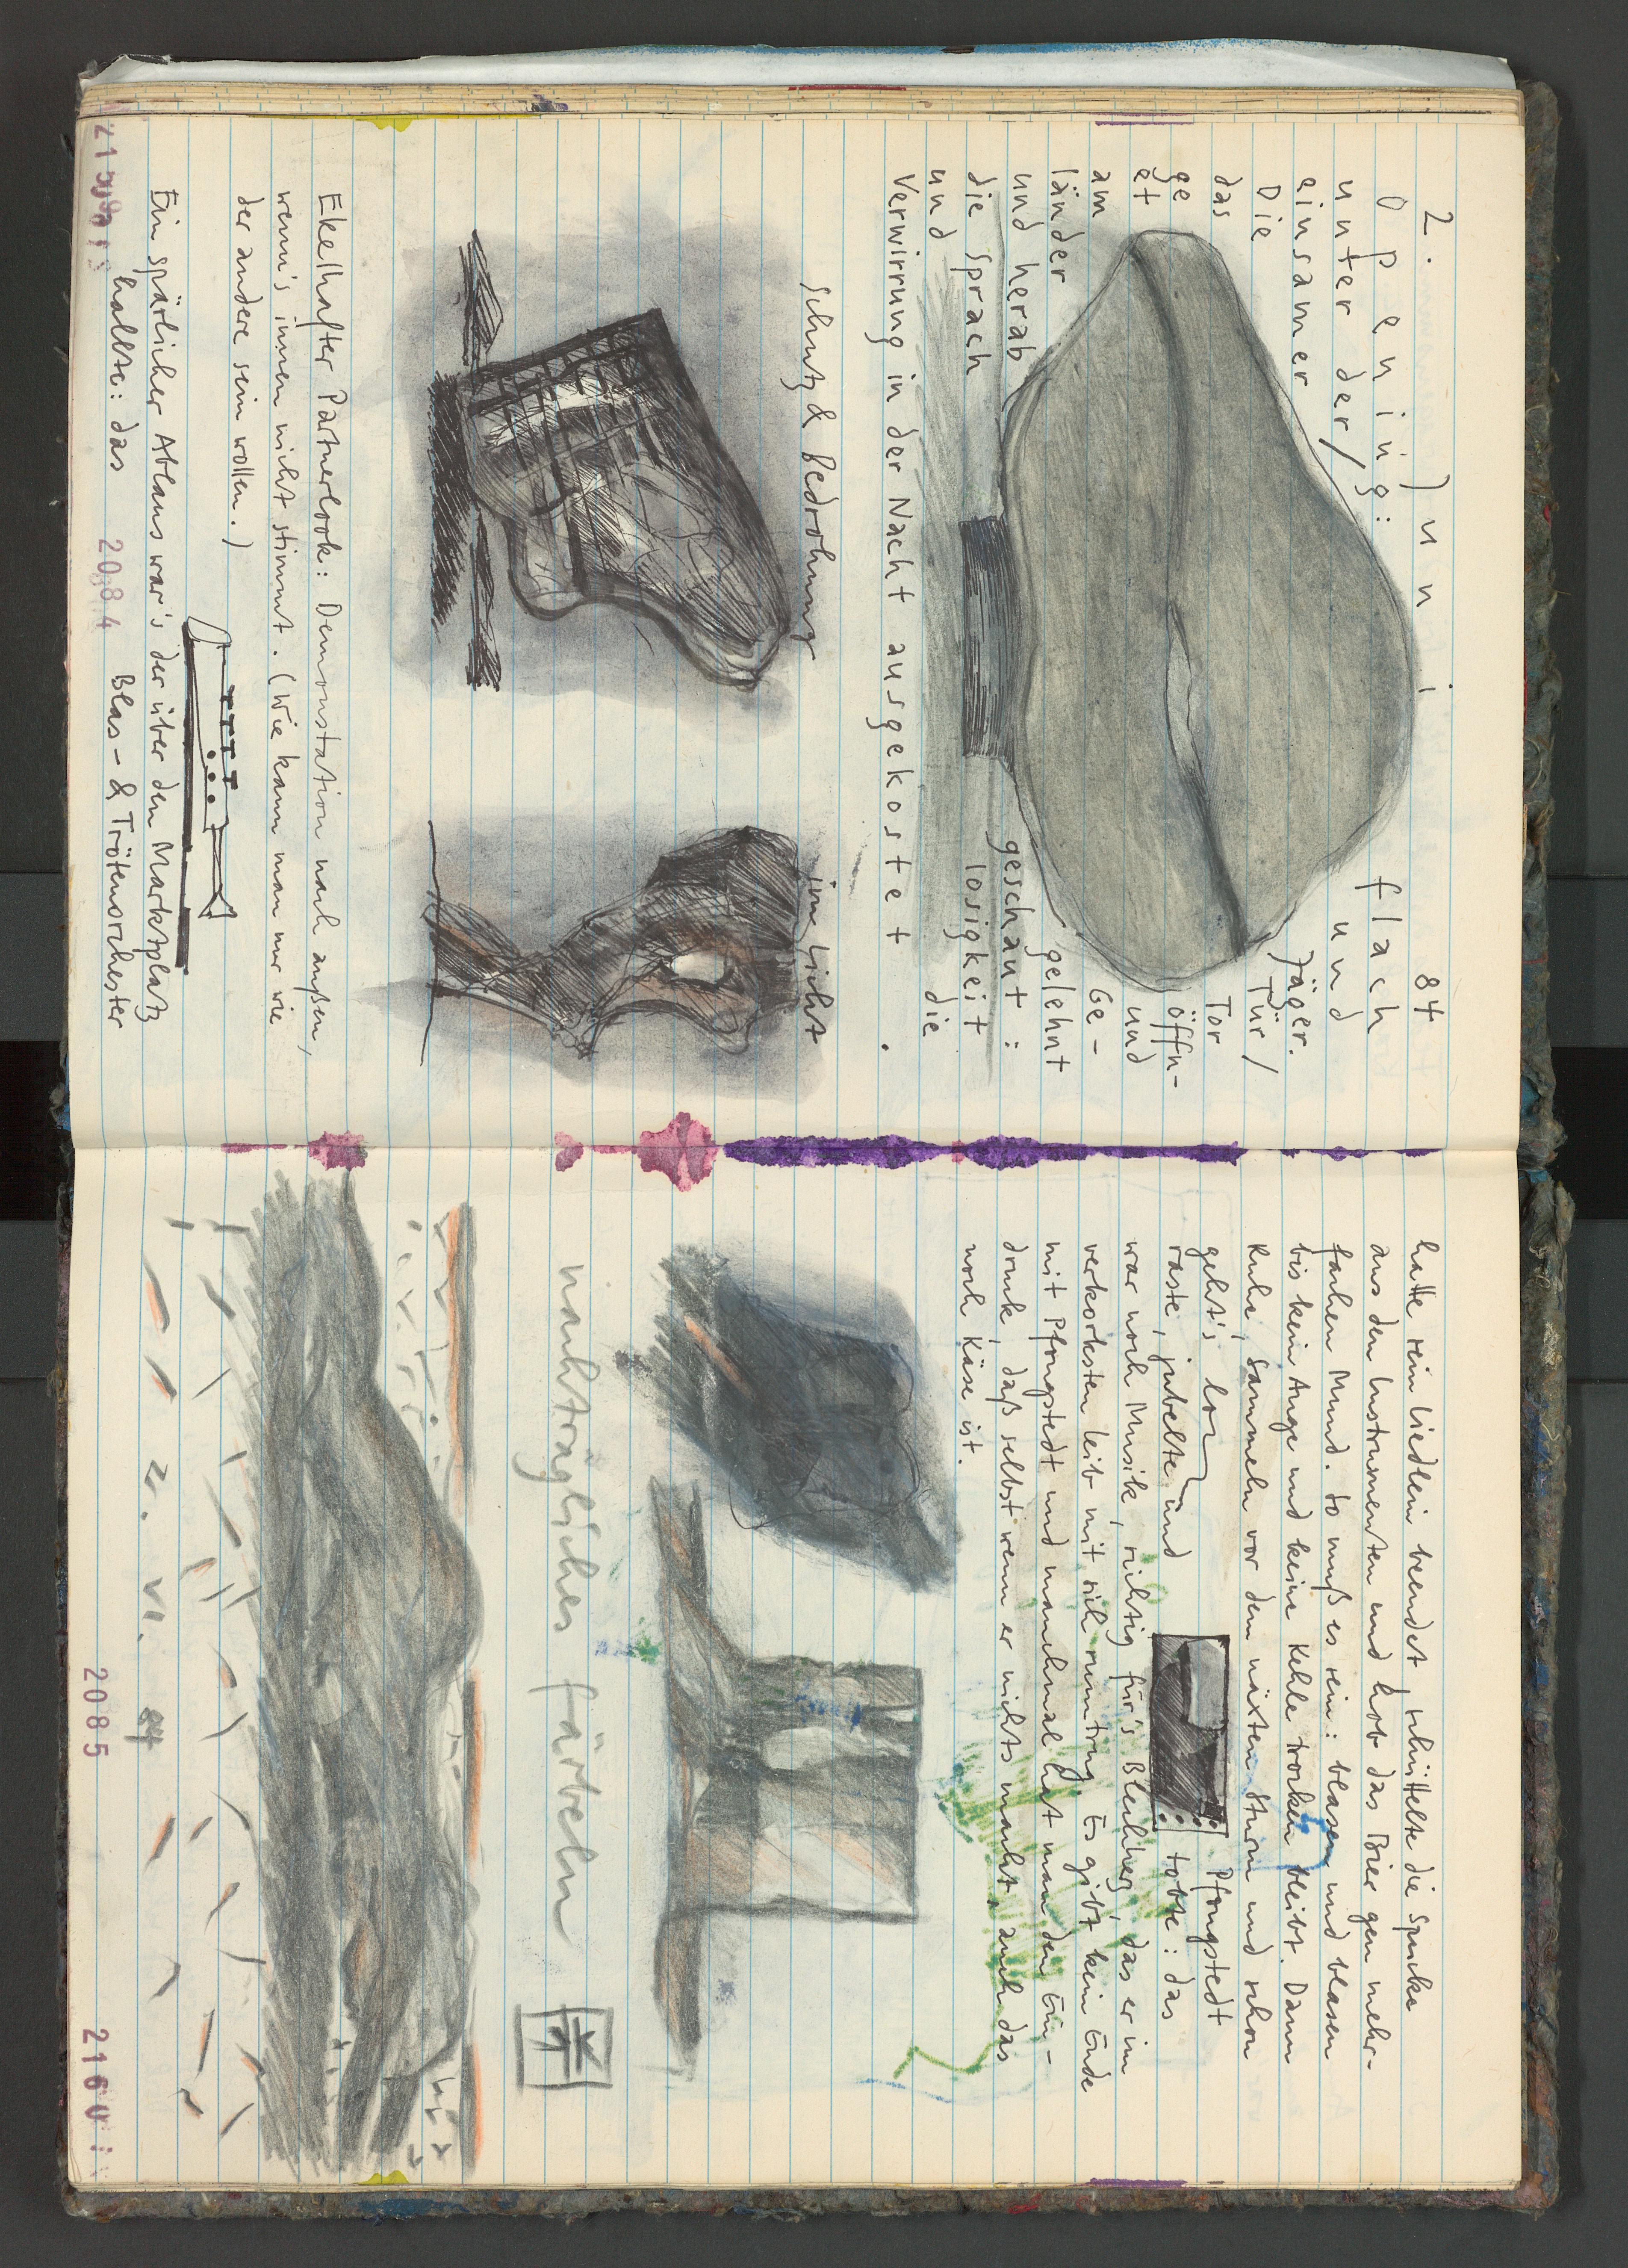 2. Juni 84
Opening: flach
unter der/ und
einsamer Jäger.
Die Tür/
das Tor
ge öffn-
et und
am Ge-
länder gelehnt
und herab geschaut:
die Sprach losigkeit
und die
Verwirrung in der Nacht ausgekostet.
Schutz & Bedrohung im Licht
Ekelhafter Partnerlook: Demonstation nach außen,
wenn's innen nicht stimmt. (Wie kann man nur wie
der andere sein wollen.)
Ein spärlicher Applaus war's der über den Marktplatz
hallte: das Blas- & Trötenorchester
2084
hatte sein Liedlein beendet, schüttelte die Spucke
aus den Instrumenten und hob das Bier gen mehr-
fachen Mund. So muß es sein: blasen und blasen
bis kein Auge und keine Kehle trocken bleibt. Dann
Ruhe, Sammeln vor dem näxten Sturm und schon
geht's los Pfongstedt
raste, jubelte und tobte: das
war noch Musik, richtig für's Bleiherz, das er im
verkorksten Leib mit sich rumtrug. Es gibt kein Ende
mit Pfongstedt und manchmal hat man den Ein-
druck, daß selbst wenn er nichts macht, auch das
noch Käse ist.
nachträgliches färbeln
2. VI. 84
2085
2160